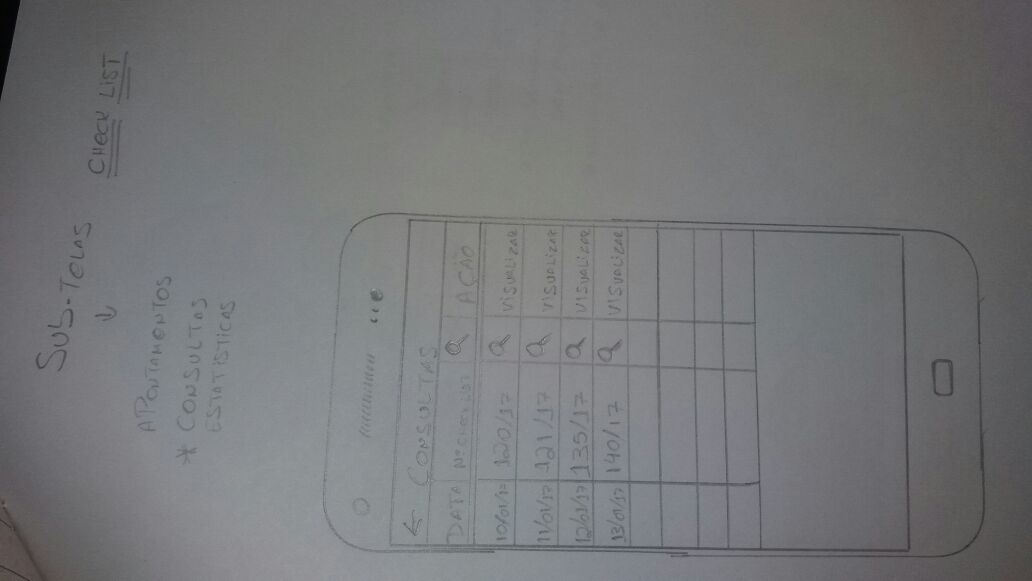 SUB-TELAS
CHECK LIST
APONTAMENTOS
* CONSULTAS
ESTATISTICAS
← CONSULTAS
DATA Nº CHECK LIST AÇÃO
10/01/17 120/17 VISUALIZAR
11/01/17 121/17 VISUALIZAR
12/01/17 135/17 VISUALIZAR
13/01/17 140/17 VISUALIZAR